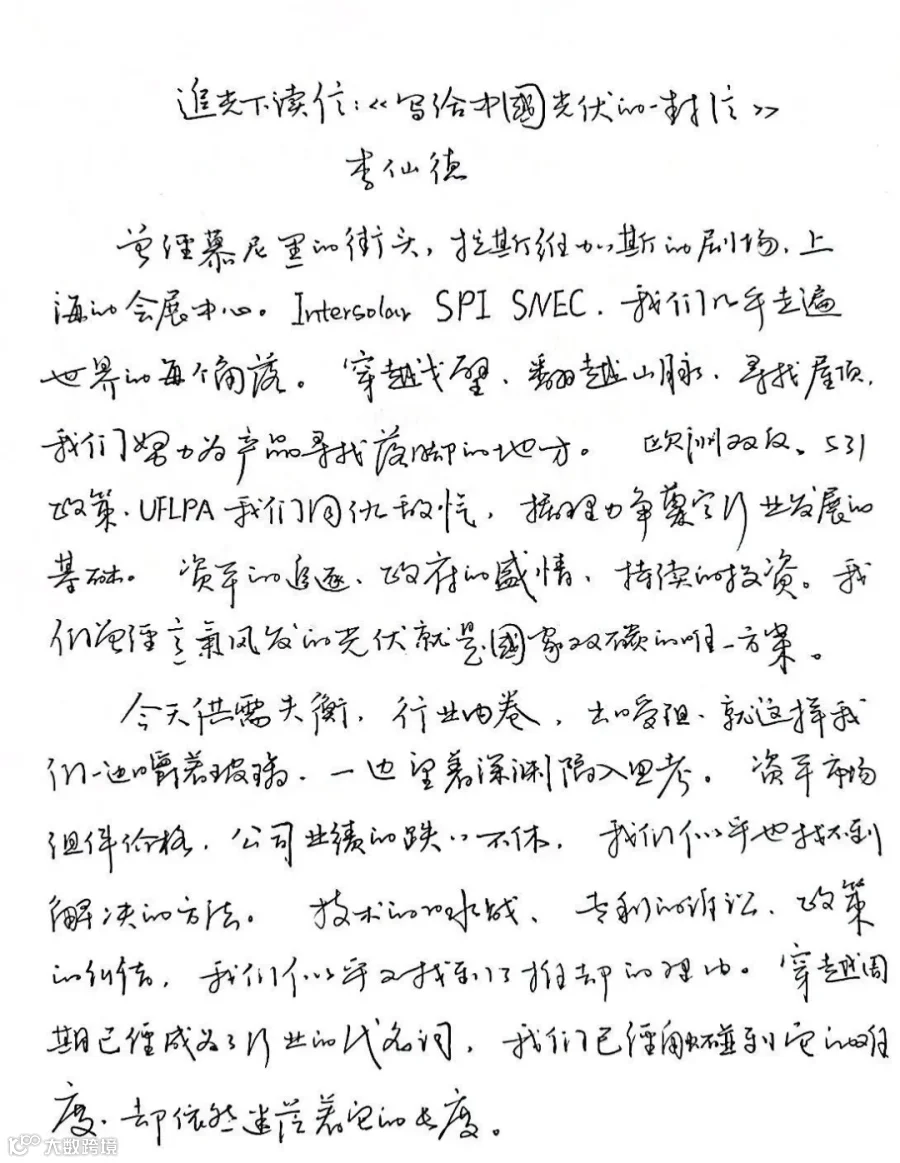 追光下读信：《写给中國光伏的一封信》
李仙德
曾经慕尼黑的街头，拉斯维加斯的剧场、上
海的会展中心。Intersolar SPI SNEC．我们几乎走遍
世界的每个角落。穿越戈壁、翻越山脉、寻找屋顶，
我们努力为产品寻找落脚的地方。欧洲双反、531
政策、UFLPA 我们同仇敌忾，据理力争奠定行业发展的
基础。资本的追逐、政府的盛情、持续的投资。我
们曾经意氣风发的光伏就是國家双碳的唯一方案。
今天供需失衡，行业内卷，出口受阻、就这样我
们一边嚼着玻璃、一边望着深渊陷入思考。资本市场
组件价格，公司业绩的跌跌不休，我们似乎也找不到
解决的方法。技术的口水战、专利的诉讼、政策
的纠结，我们似乎又找到了推却的理由。穿越周
期已经成为了行业的代名词，我们已经触碰到它的难
度、却依然迷茫着它的长度。
大数跨境